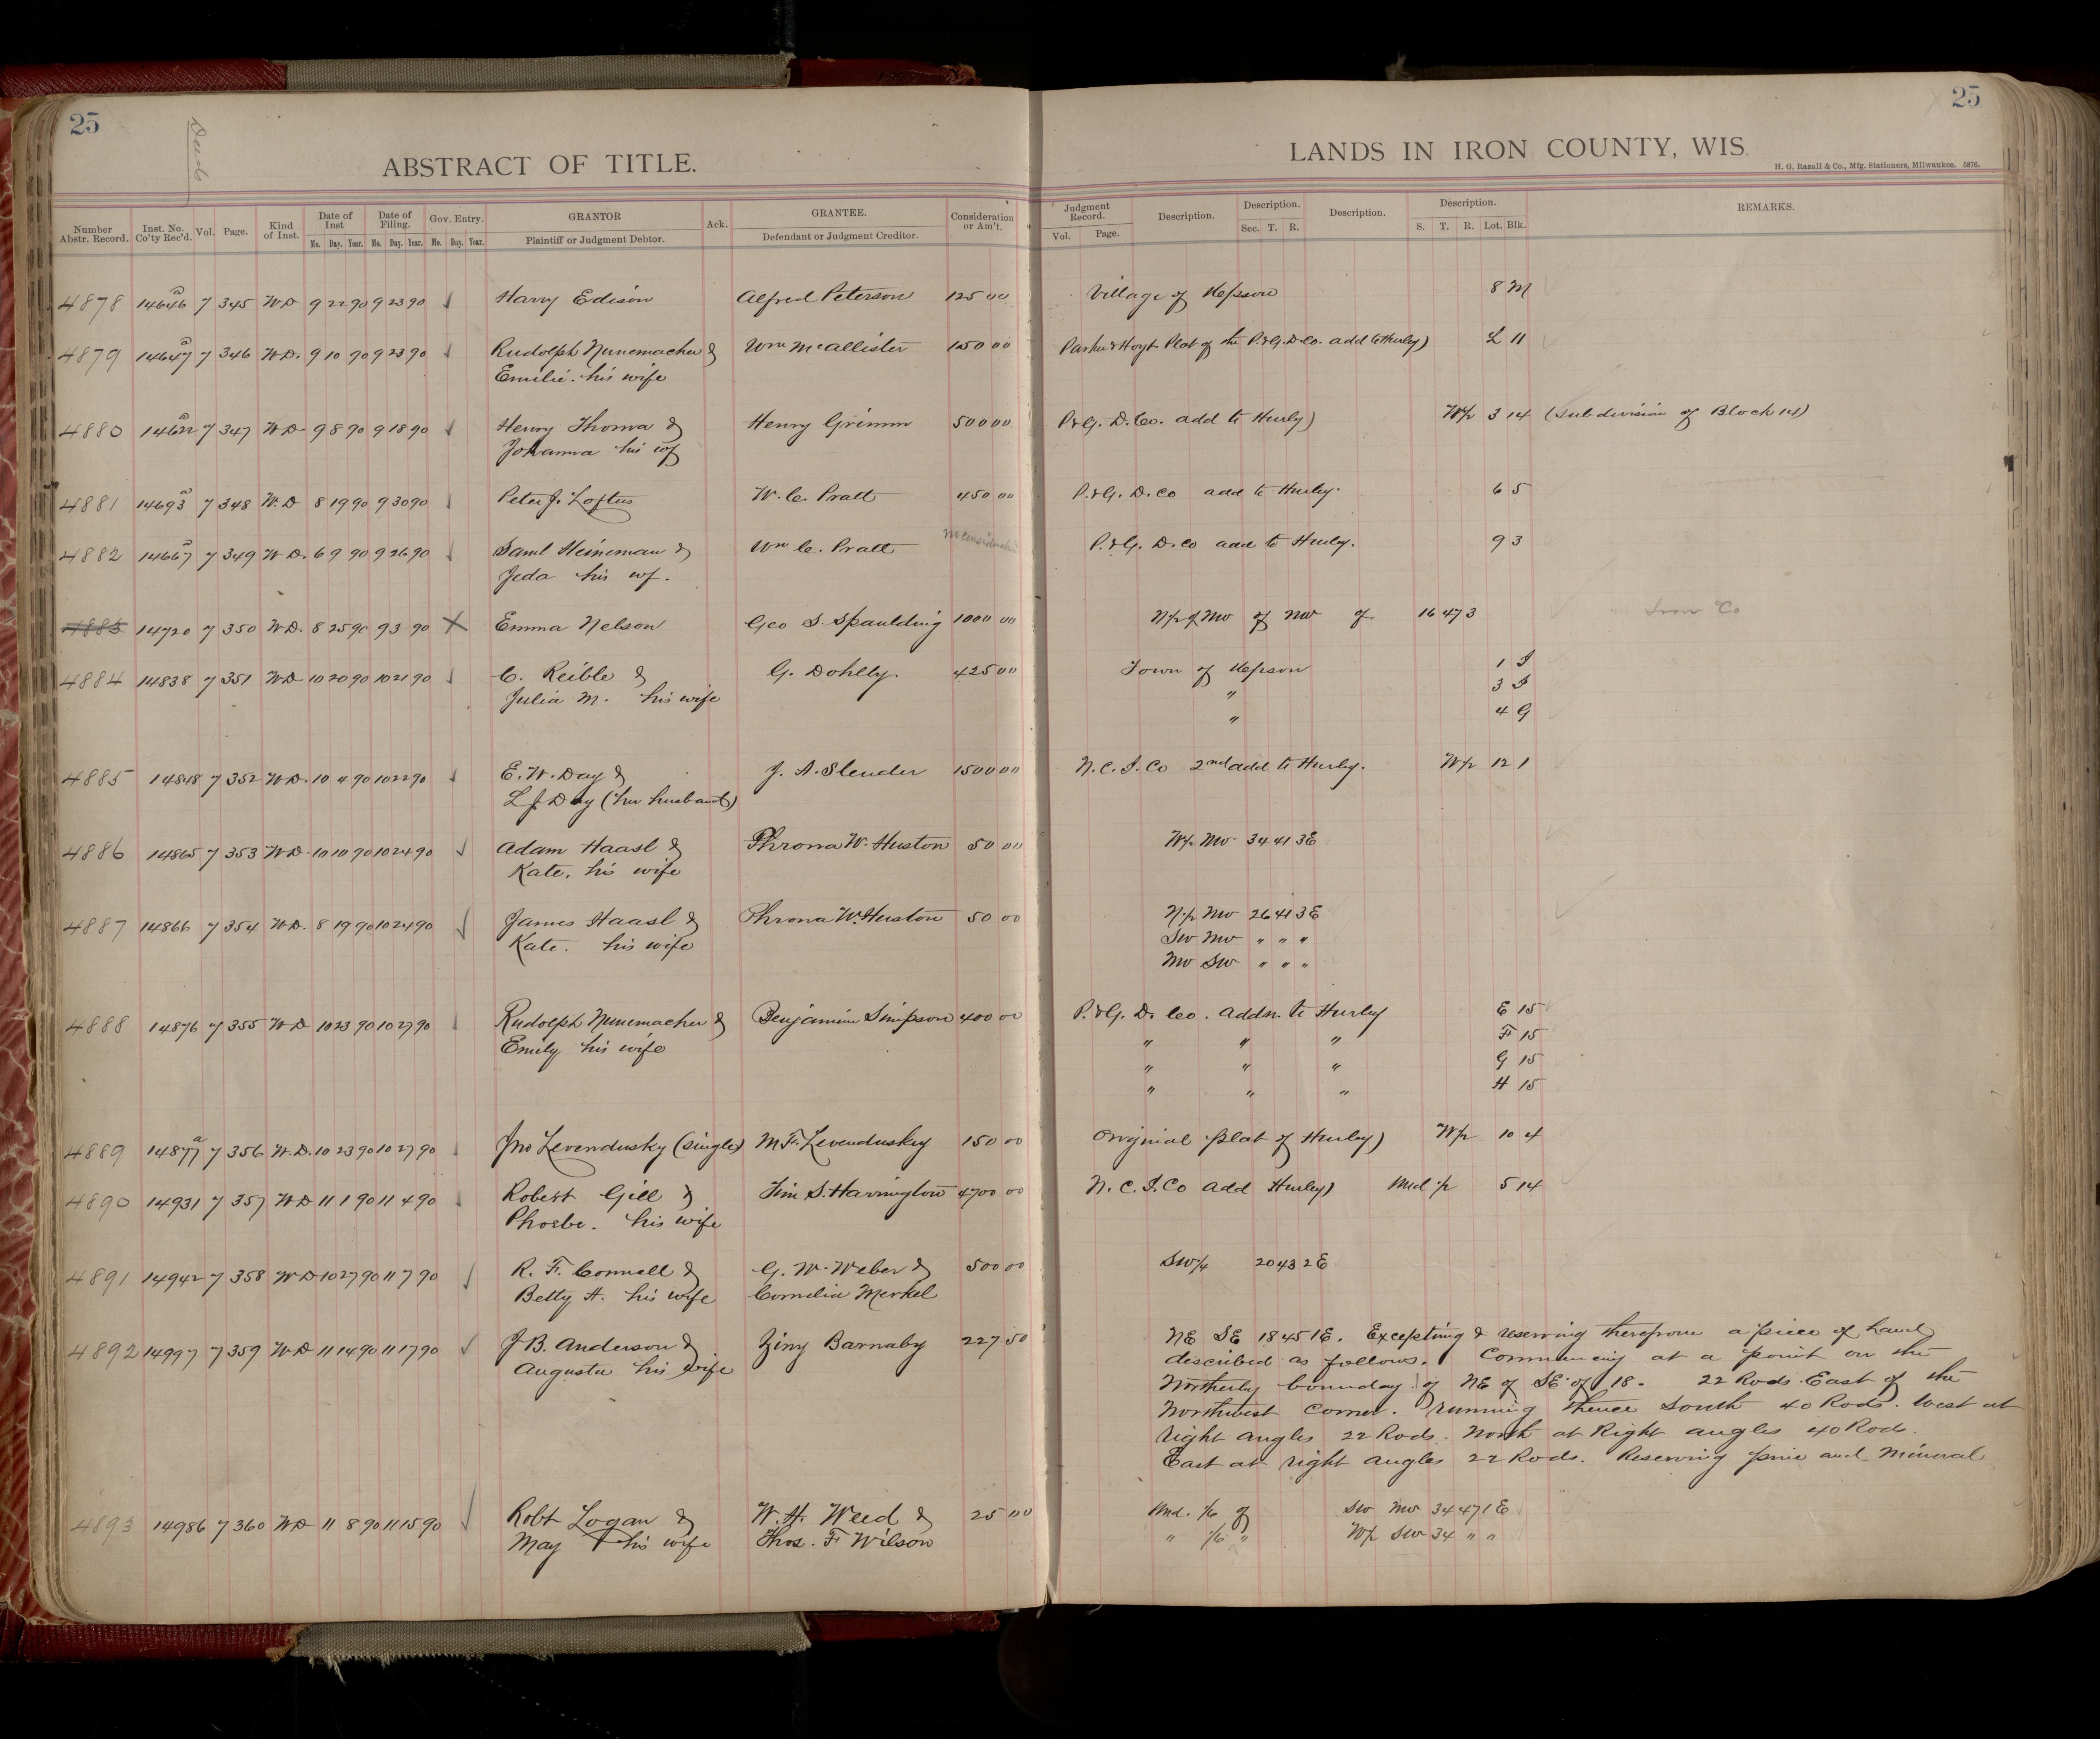 25
Deeds
ABSTRACT OF TITLE.
Number Abstr. Record. Inst. No. Co'ty Rec'd. Vol. Page. Kind of Inst. Date of Inst Mo. Day. Year. Date of Filing. Mo. Day. Year. Gov. Entry. Mo. Day. Year. GRANTOR Plaintiff or Judgment Debtor. Ack. GRANTEE. Defendant or Judgment Creditor. Consideration or Am't.
4878 14646a 7 345 WD 9 22 90 9 23 90 ✓ Harry Edison Alfred Peterson 125 00
4879 14647a 7 346 W.D. 9 10 90 9 23 90 ✓ Rudolph Nunemacher & Wm McAllister 150 00
Emilie. his wife
4880 14622a 7 347 WD 9 8 90 9 18 90 ✓ Henry Thoma & Henry Grimm 500 00
Johanna his wf
4881 14693a 7 348 W.D 8 19 90 9 30 90 ✓ Peter J. Loftus W. C. Pratt 450 00
4882 14667a 7 349 W D. 6 9 90 9 26 90 ✓ Saml Heineman & Wm C. Pratt
Jeda his wf.
4883 14720 7 350 W.D. 8 25 90 9 3 90 X Emma Nelson Geo S. Spaulding 1000 00
4884 14838 7 351 WD 10 20 90 10 21 90 ✓ C. Reible & G. Dohlly. 425 00
Julia M. his wife
4885 14848 7 352 WD. 10 4 90 10 22 90 ✓ E. W. Day & J. A. Slender 1500 00
L J. Day (her husband)
4886 14865 7 353 WD. 10 10 90 10 24 90 ✓ Adam Haasl & Phrona W. Huston 50 00
Kate. his wife
4887 14866 7 354 WD. 8 19 90 10 24 90 ✓ James Haasl & Phrona W. Huston 50 00
Kate. his wife
4888 14876 7 355 WD 10 23 90 10 27 90 ✓ Rudolph Nunemacher & Benjamin Simpson 400 00
Emily his wife
4889 14877a 7 356 W.D. 10 23 90 10 27 90 ✓ Jno Levendusky (single) M F. Levendusky 150 00
4890 14931 7 357 WD 11 1 90 11 4 90 ✓ Robert Gill & Tim S. Harrington 4700 00
Phoebe. his wife
4891 14942 7 358 WD 10 27 90 11 7 90 ✓ R. F. Connell & G. W. Weber & 500 00
Betty A. his wife Cornelia Merkel
4892 14997 7 359 WD 11 14 90 11 17 90 ✓ J B. Anderson & Ziny Barnaby 227 50
Augusta his wife
4893 14986 7 360 WD 11 8 90 11 15 90 ✓ Robt Logan & W. H. Weed & 25 00
May his wife Thos. F Wilson
25
LANDS IN IRON COUNTY, WIS.
H. G. Razall & Co., Mfg. Stationers, Milwaukee. 5876.
Judgment Record. Vol. Page. Description. Description. Sec. T. R. Description. Description. S. T. R. Lot. Blk. REMARKS.
Village of Hepson 8 M
Parker & Hoyt Plat of the P.&G.D.Co. add to Hurley) L 11
P.&G. D. Co. add to Hurley) W½ 3 14 (Subdivision of Block 14)
P.&G. D. Co add to Hurley. 6 5
P.&G. D. Co add to Hurley. 9 3
N½ of NW of NW of 16 47 3 Iron Co
Town of Hepson 1 I
" 3 I
" 4 G
N. C. I. Co 2nd add to Hurley. W½ 12 1
W½ NW 34 41 3E
N½ NW 26 41 3E
SW NW " " "
NW SW " " "
P.&G. D. Co. addn. to Hurley E 15
" " " F 15
" " " G 15
" " " H 15
Original plat of Hurley) W½ 10 4
N. C. I. Co add Hurley) Und ½ 5 14
SW¼ 20 43 2E
NE SE 18 45 1E. Excepting & reserving therefrom a piece of land
described as follows. Commencing at a point on the
Northerly bounday of NE of SE of 18. 22 Rods East of the
Northwest corner. running thence South 40 Rods. West at
right angles 22 Rods. North at Right angles 40 Rod.
East at right angles 22 Rods. Reserving pine and Mineral
Und. 1/6 of SW NW 34 47 1E
" 1/6 " W½ SW 34 " "